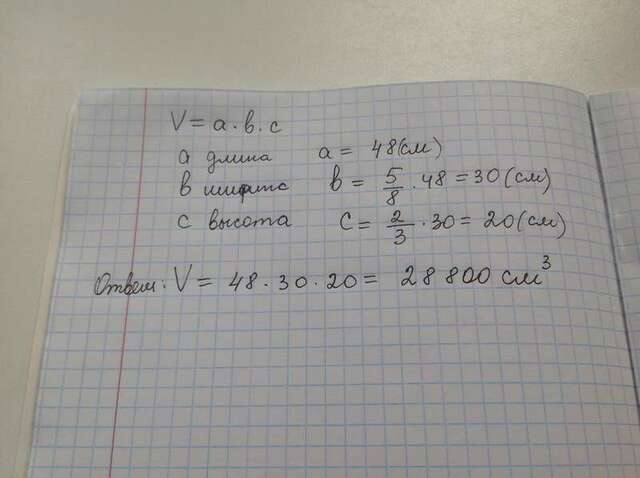 V = a · b · c
a длина a = 48 (см)
b ширина b = 5/8 · 48 = 30 (см)
c высота c = 2/3 · 30 = 20 (см)
Ответ: V = 48 · 30 · 20 = 28 800 см³